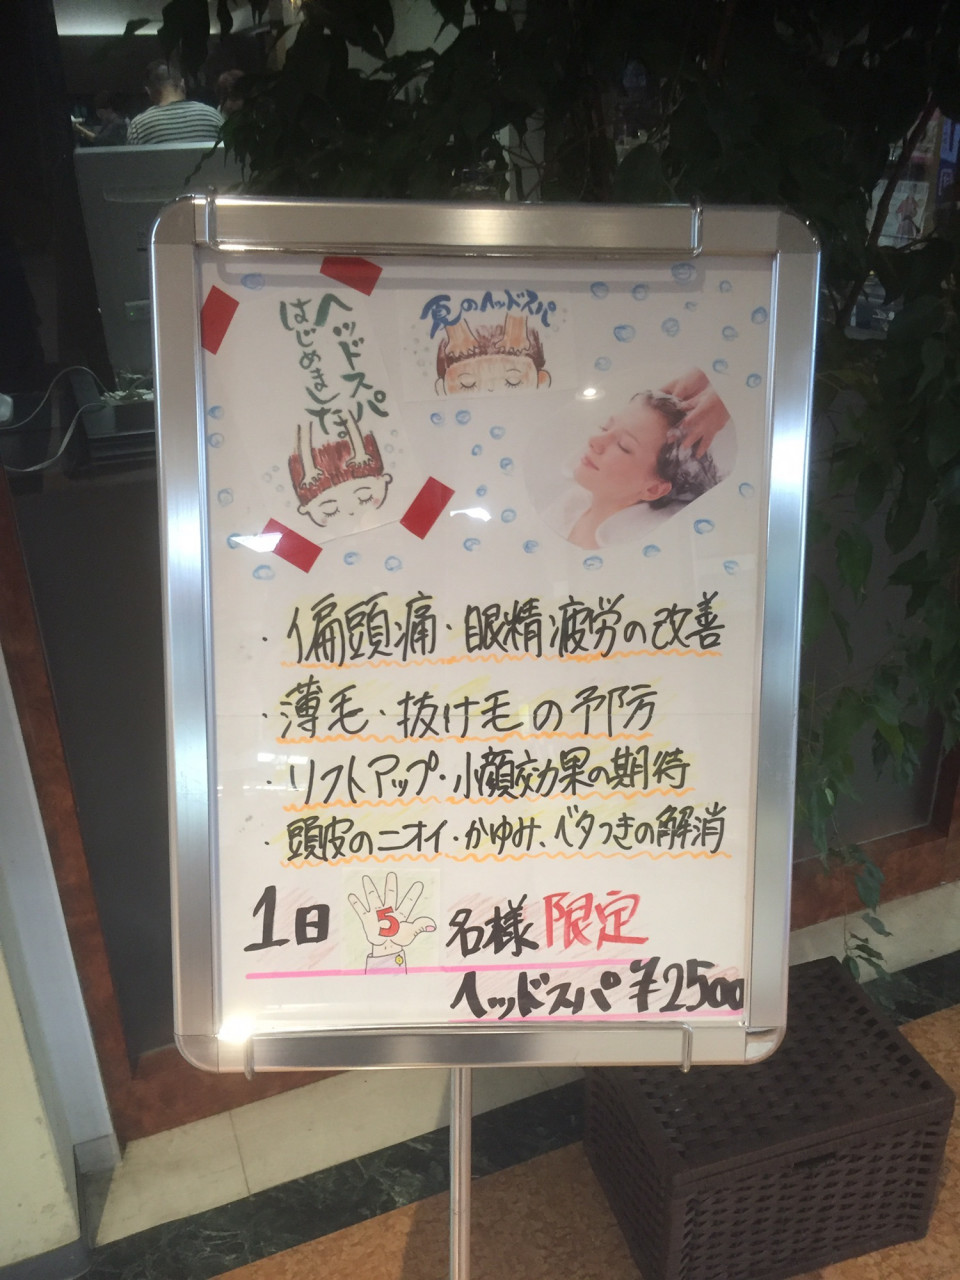 ヘッドスパ
はじめました
夏のヘッドスパ
・偏頭痛・眼精疲労の改善
・薄毛・抜け毛の予防
・リフトアップ・小顔効果の期待
・頭皮のニオイ・かゆみ、ベタつきの解消
1日 5 名様限定
ヘッドスパ ¥2500